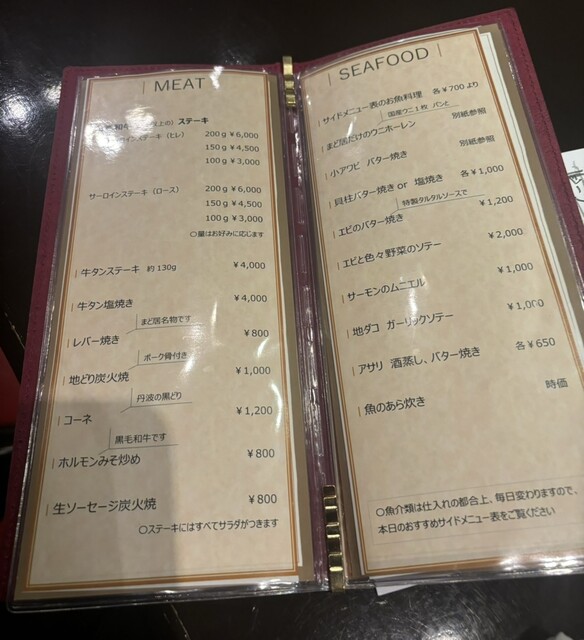 MEAT
和牛 以上の）ステーキ
インステーキ（ヒレ） 200g ¥6,000
150g ¥4,500
100g ¥3,000
サーロインステーキ（ロース） 200g ¥6,000
150g ¥4,500
100g ¥3,000
〇量はお好みに応じます
牛タンステーキ 約130g ¥4,000
牛タン塩焼き ¥4,000
まど居名物です
レバー焼き ¥800
ポーク骨付き
地どり炭火焼 ¥1,000
丹波の黒どり
コーネ ¥1,200
黒毛和牛です
ホルモンみそ炒め ¥800
生ソーセージ炭火焼 ¥800
〇ステーキにはすべてサラダがつきます
SEAFOOD
サイドメニュー表のお魚料理 各¥700より
国産ウニ1枚 パンと
まど居だけのウニホーレン 別紙参照
小アワビ バター焼き 別紙参照
貝柱バター焼き or 塩焼き 各¥1,000
特製タルタルソースで
エビのバター焼き ¥1,200
エビと色々野菜のソテー ¥2,000
サーモンのムニエル ¥1,000
地ダコ ガーリックソテー ¥1,000
アサリ 酒蒸し、バター焼き 各¥650
魚のあら炊き 時価
〇魚介類は仕入れの都合上、毎日変わりますので、
本日のおすすめサイドメニュー表をご覧ください